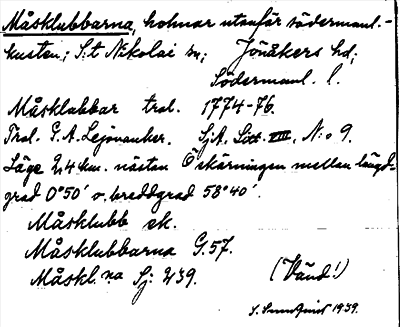 Måsklubbarna, holmar utanför södermanl.-
kusten; S:t Nikolai sn; Jönåkers hd;
Södermanl. l.
Måsklubbar trol. 1774-76.
Trol. G. A. Lejonanker. SjA. Litt. VIII, N:o 9.
Läge 2,4 km. nästan Ö skärningen mellan längd-
grad 0°50' o. breddgrad 58°40'.
Måsklubb ek.
Måsklubbarna G. 57.
Måskl. na Sj: 239. (Vänd!)
S. Sundquist 1939.